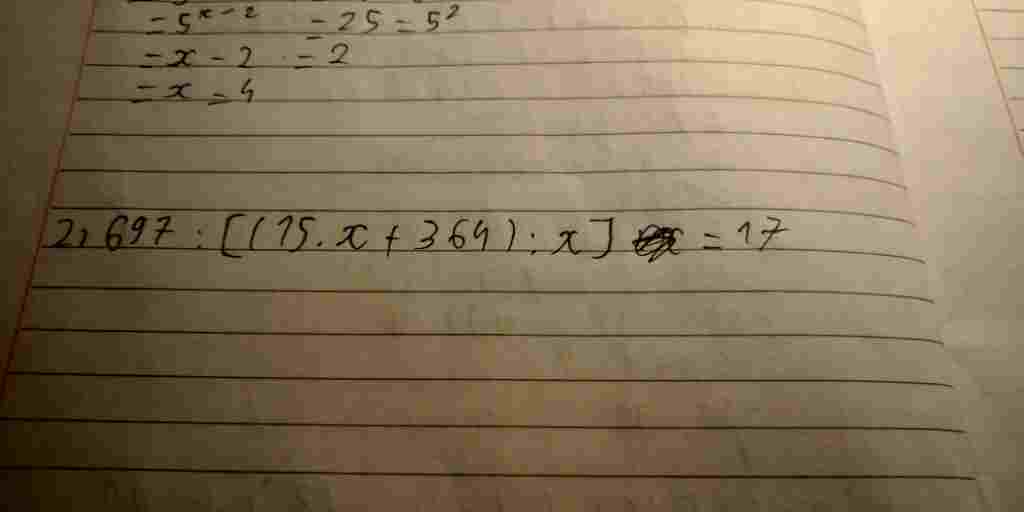 = 5^x-2 = 25 = 5²
= x - 2 = 2
= x = 4
2, 697 : [(15.x + 364) : x] = 17